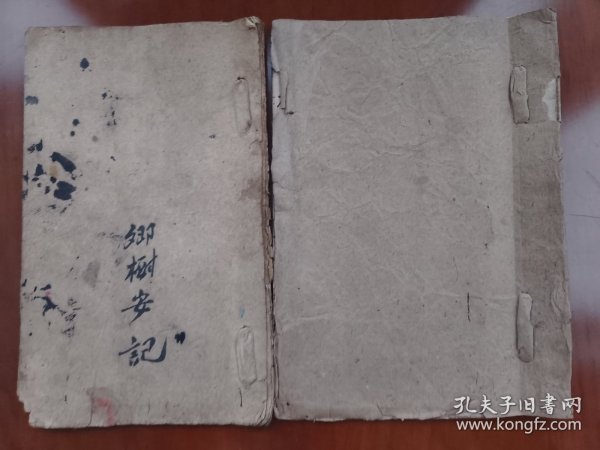 郷樹安記
孔夫子旧书网
www.kongfz.com